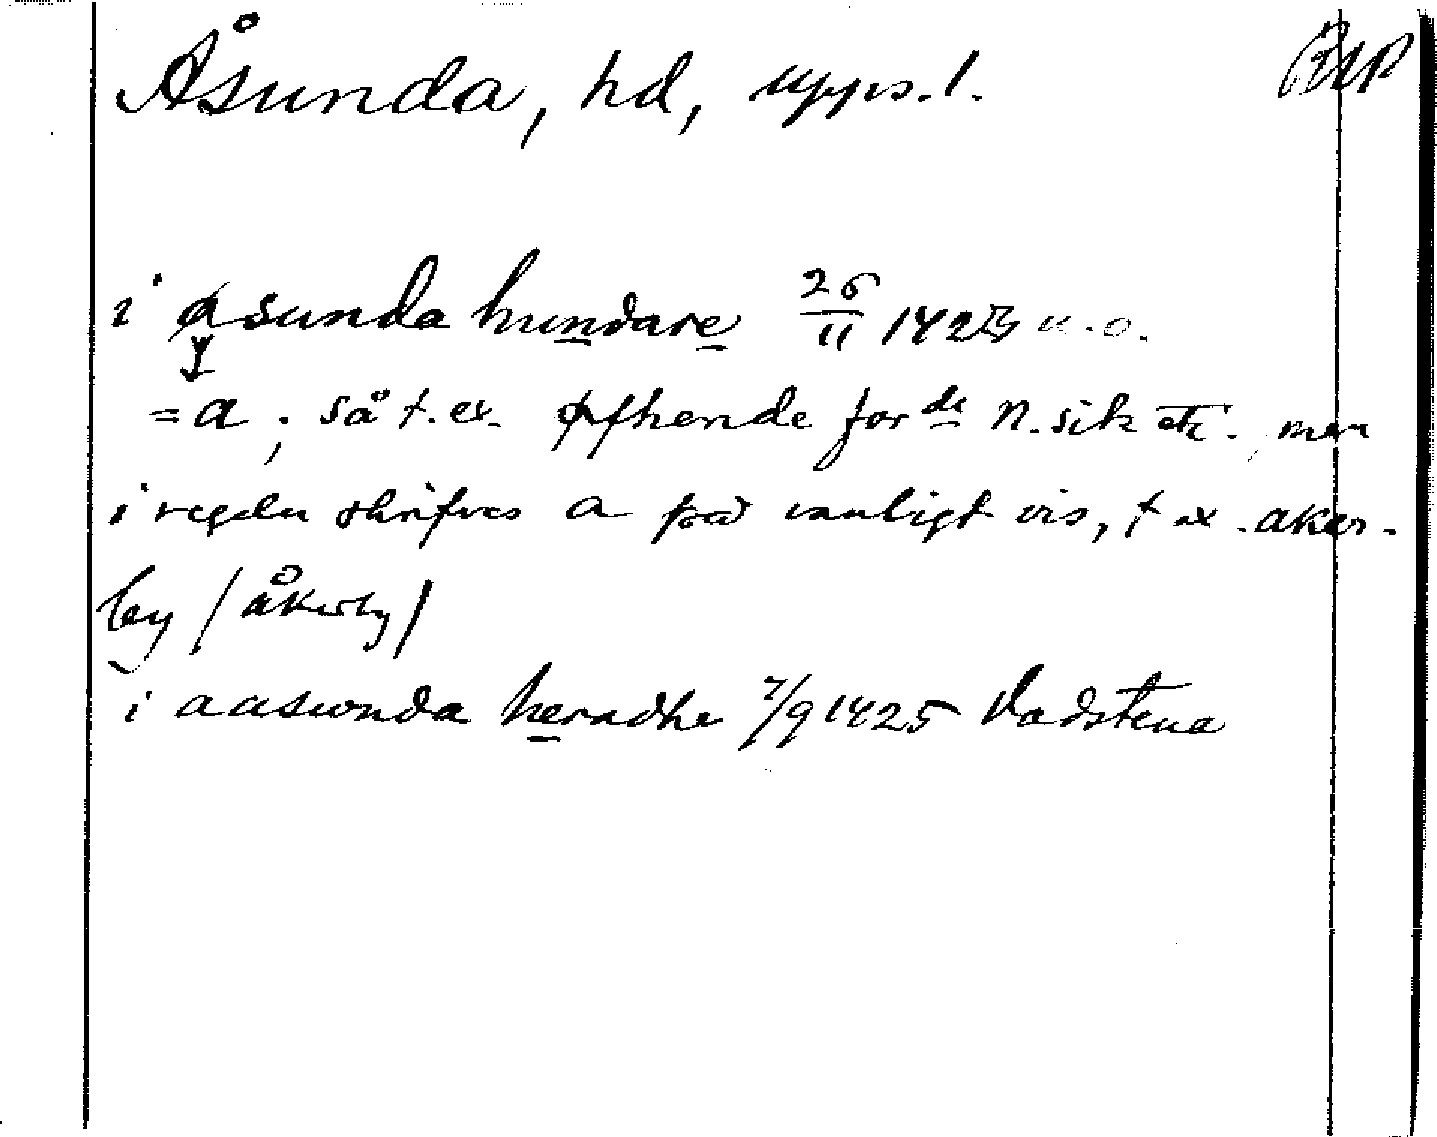 Åsunda, hd, Upps. l.
i asunda hundare 26/11 1423 u.o.
= a ; så t. ex. øfhende for de N. sik etc., men
i regeln skrifves a på vanligt vis, t ex. aker-
by / åkerby /
i aasunda heradhe 7/9 1425 Vadstena